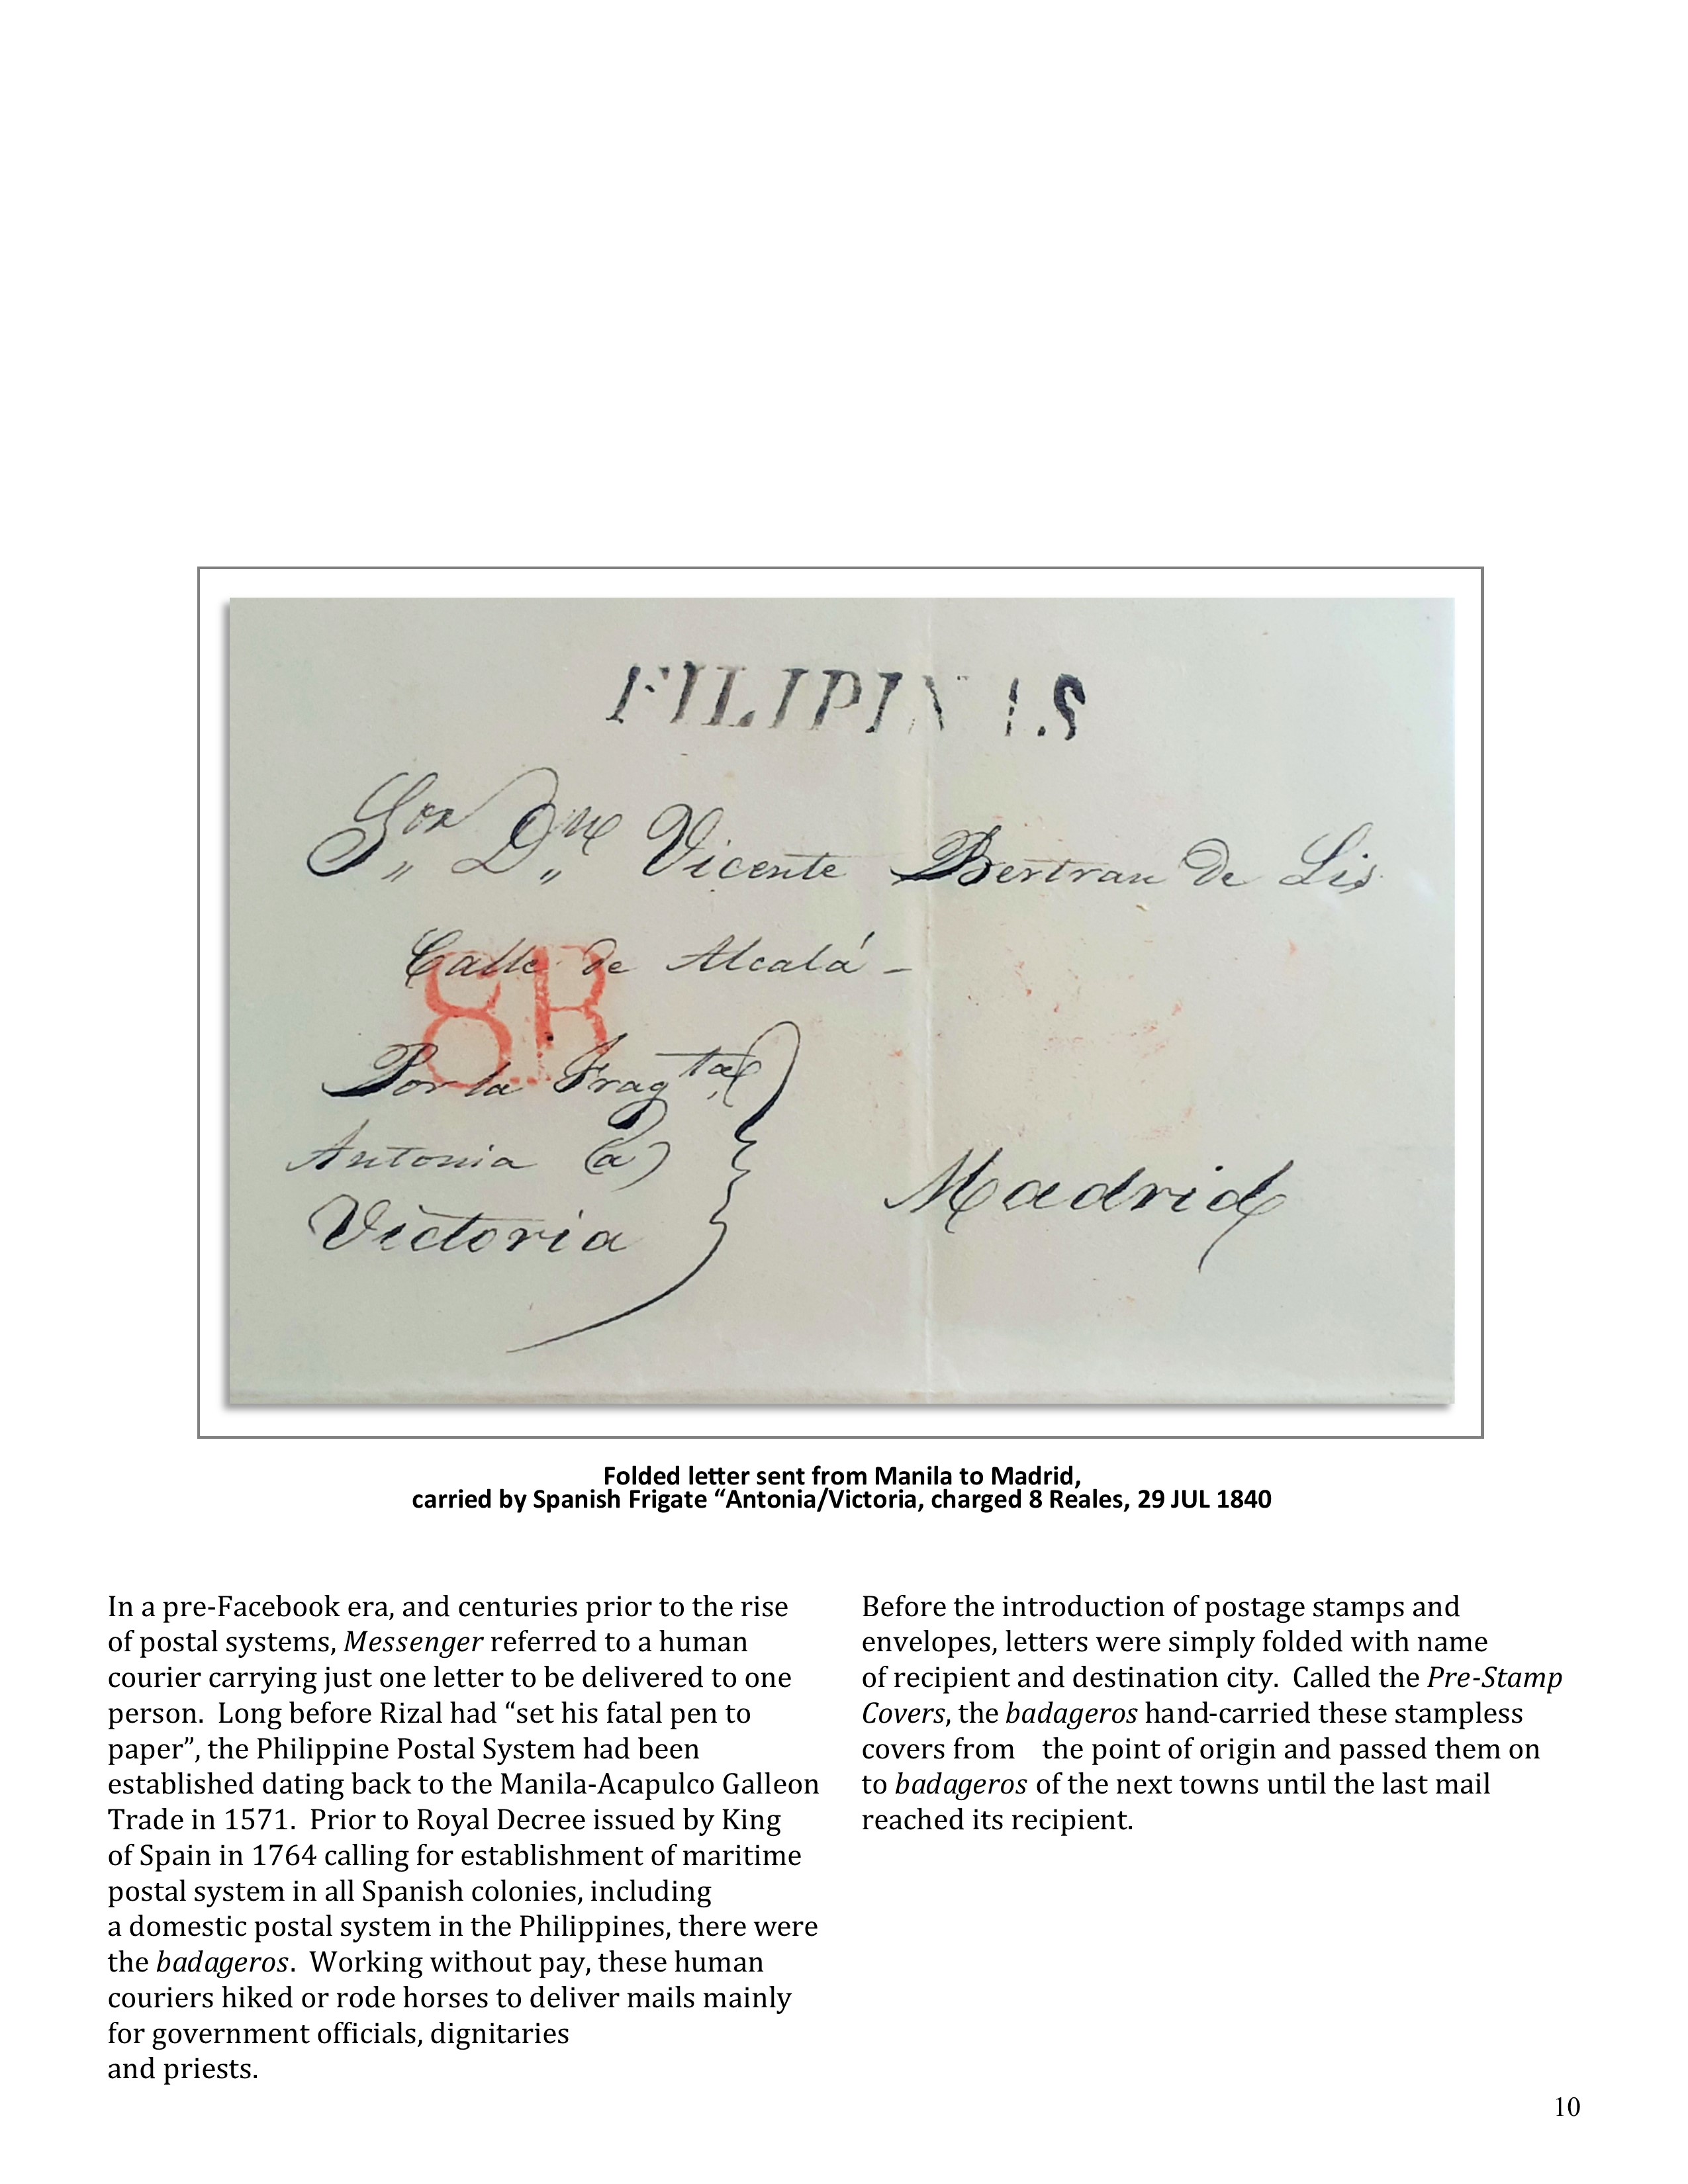 FILIPINAS
Sor Dn Vicente Bertran De Lis
Calle de Alcalá -
8R
Por la Fragta
Antonia (a)
Victoria
Madrid
Folded letter sent from Manila to Madrid,
carried by Spanish Frigate “Antonia/Victoria, charged 8 Reales, 29 JUL 1840
In a pre-Facebook era, and centuries prior to the rise
of postal systems, Messenger referred to a human
courier carrying just one letter to be delivered to one
person. Long before Rizal had “set his fatal pen to
paper”, the Philippine Postal System had been
established dating back to the Manila-Acapulco Galleon
Trade in 1571. Prior to Royal Decree issued by King
of Spain in 1764 calling for establishment of maritime
postal system in all Spanish colonies, including
a domestic postal system in the Philippines, there were
the badageros. Working without pay, these human
couriers hiked or rode horses to deliver mails mainly
for government officials, dignitaries
and priests.
Before the introduction of postage stamps and
envelopes, letters were simply folded with name
of recipient and destination city. Called the Pre-Stamp
Covers, the badageros hand-carried these stampless
covers from the point of origin and passed them on
to badageros of the next towns until the last mail
reached its recipient.
10